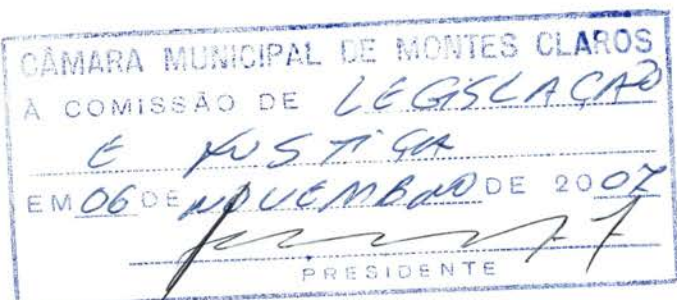 CÂMARA MUNICIPAL DE MONTES CLAROS
À COMISSÃO DE LEGISLAÇÃO
E JUSTIÇA
EM 06 DE NOVEMBRO DE 2007
PRESIDENTE